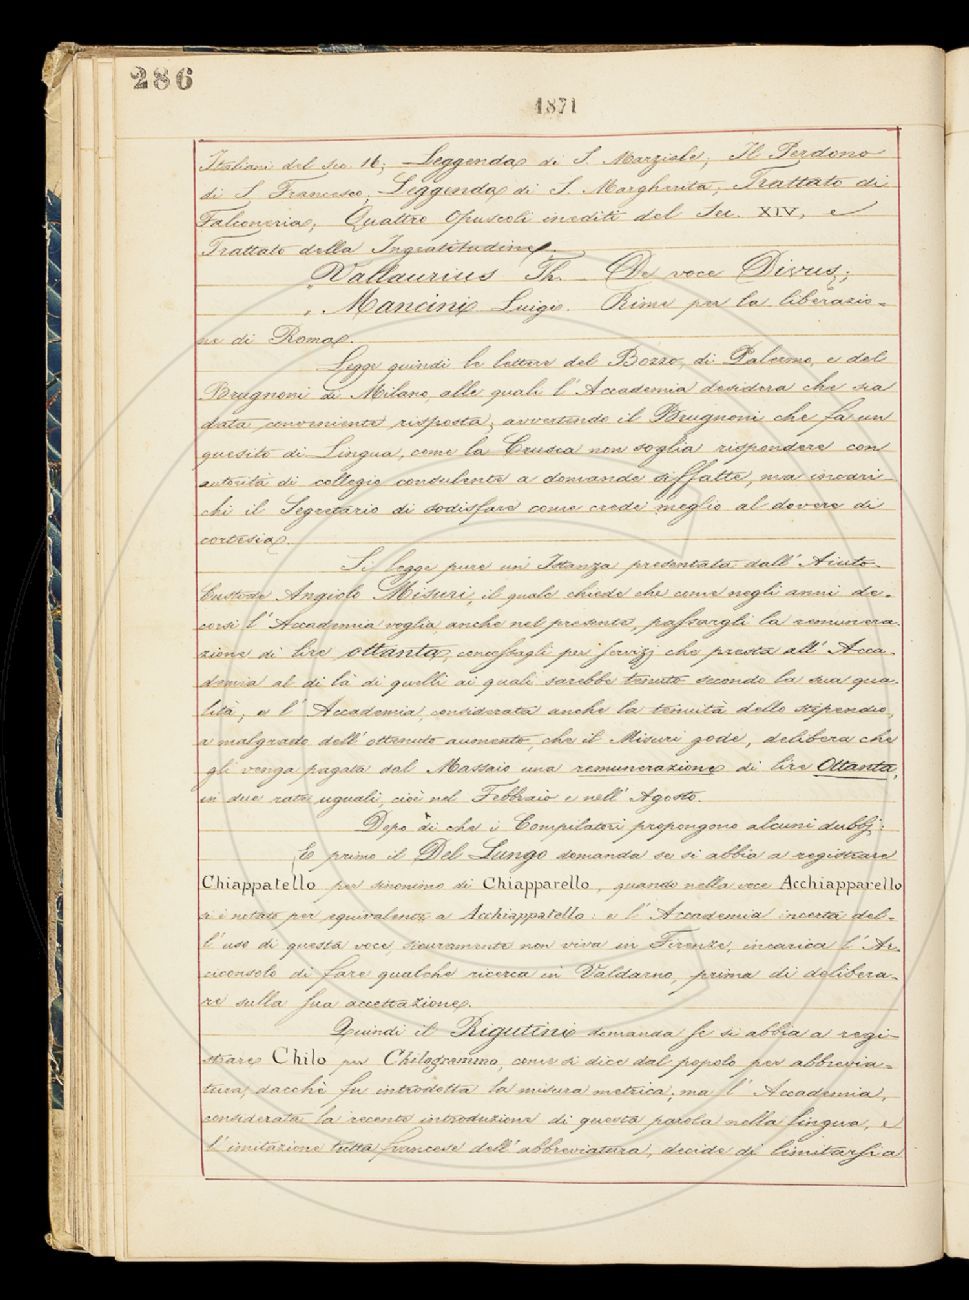 286
1871
Italiani del Sec. 16; Leggenda di S. Marziale; Il Perdono
di S. Francesco; Leggenda di S. Margherita; Trattato di
Falconeria; Quattro Opuscoli inediti del Sec. XIV, e
Trattato della Ingratitudine.
Vallaurius Th. De voce Divus;
Mancini Luigi. Rime per la liberazio-
ne di Roma.
Legge quindi le lettere del Bozzo, di Palermo, e del
Brugnoni di Milano, alle quali l'Accademia desidera che sia
data conveniente risposta, avvertendo il Brugnoni che fa un
quesito di Lingua, come la Crusca non soglia rispondere con
autorità di collegio consulente a domande siffatte, ma incari
chi il Segretario di sodisfare come crede meglio al dovere di
cortesia.
Si legge pure un'Istanza presentata dall'Aiuto
Custode Angiolo Misuri, il quale chiede che come negli anni de-
corsi l'Accademia voglia, anche nel presente, passargli la remunera-
zione di lire ottanta, concessagli per servizj che presta all'Acca-
demia al di là di quelli ai quali sarebbe tenuto secondo la sua qua-
lità; e l'Accademia, considerata anche la tenuità dello stipendio,
a malgrado dell'ottenuto aumento, che il Misuri gode, delibera che
gli venga pagata dal Massaio una remunerazione di lire Ottanta,
in due rate uguali, cioè nel Febbraio e nell'Agosto.
Dopo di che i Compilatori propongono alcuni dubbj:
E primo il Del Lungo domanda se si abbia a registrare
Chiappatello per sinonimo di Chiapparello, quando nella voce Acchiapparello
si è notato per equivalenza a Acchiappatello: e l'Accademia incerta del-
l'uso di questa voce, sicuramente non viva in Firenze, incarica l'Ar-
ciconsolo di fare qualche ricerca in Valdarno, prima di delibera-
re sulla sua accettazione.
Quindi il Rigutini domanda se si abbia a regi-
strare Chilo per Chilogrammo, come si dice dal popolo per abbrevia-
tura, dacchè fu introdotta la misura metrica; ma l'Accademia,
considerata la recente introduzione di questa parola nella lingua, e
l'imitazione tutta francese dell'abbreviatura, decide di limitarsi a